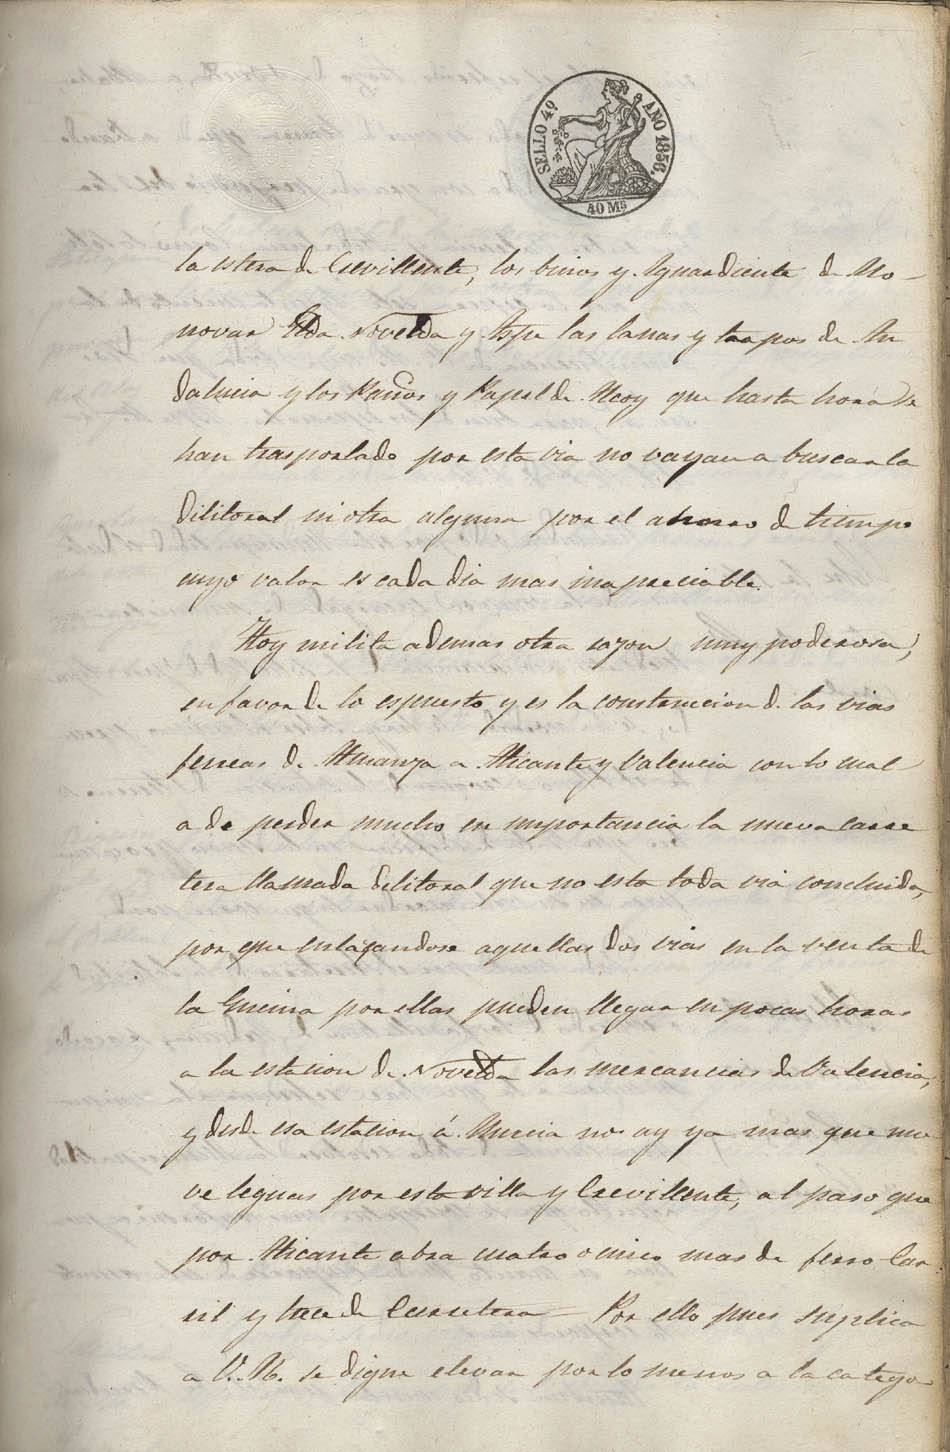 SELLO 4º AÑO 1856.
40 Ms
la estera de Crevillente, los binos y Aguardiente de Mo-
novar Elda Novelda y Aspe las lanas y trapos de An
dalucia y los Paños y Papel de Alcoy que hasta hora se
han trasportado por esta via no vayan a buscar la
dilitoral ni otra alguna por el ahorro de tiempo
cuyo valor es cada dia mas inapreciable.
Hoy milita ademas otra razon muy poderosa,
en favor de lo espuesto y es la construccion de las vias
ferreas de Almanza a Alicante y Valencia con lo cual
a de perder mucho en importancia la nueva carre
tera llamada delitoral que no esta toda via concluida,
por que enlaçandose aquellas dos vias en la venta de
la Encina por ellas pueden llegar en pocas horas
a la estacion de Novelda las mercancias de Valencia,
y desde esa estacion á Murcia no ay ya mas que nue
ve leguas por esta villa y Crevillente, al paso que
por Alicante abra cuatro o cinco mas de ferro-Car
ril y trece de Carretera - Por ello pues Suplica
a V.M. se digne elevar por lo menos a la catego-